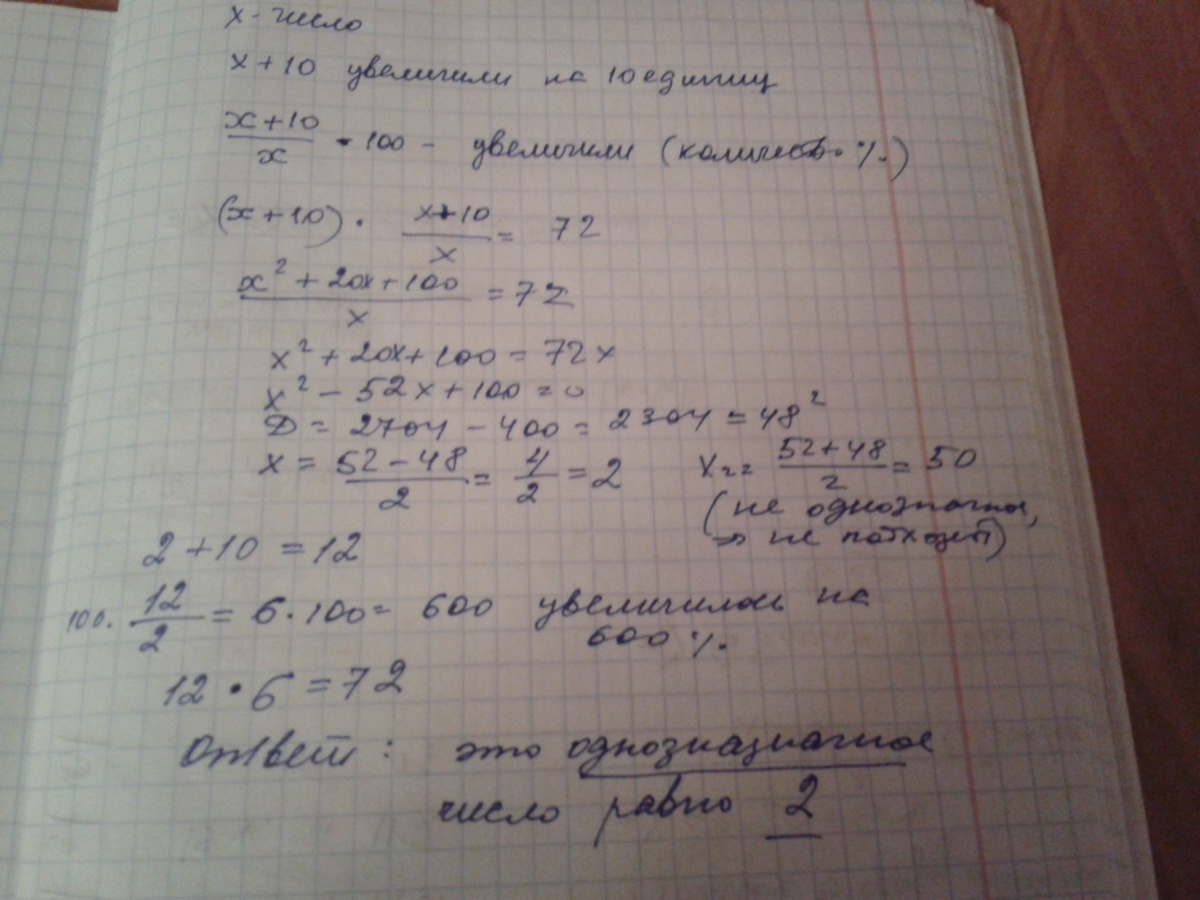 x - число
x + 10 увеличили на 10 единиц
(x+10)/x · 100 - увеличили (количеств. %)
(x+10) · (x+10)/x = 72
(x² + 20x + 100)/x = 72
x² + 20x + 100 = 72x
x² - 52x + 100 = 0
D = 2704 - 400 = 2304 = 48²
x = (52 - 48)/2 = 4/2 = 2 x₂ = (52 + 48)/2 = 50
(не однозначное,
⇒ не потходит)
2 + 10 = 12
100. 12/2 = 6 · 100 = 600 увеличилось на
600 %.
12 · 6 = 72
Ответ: это однознацначное
число равно 2